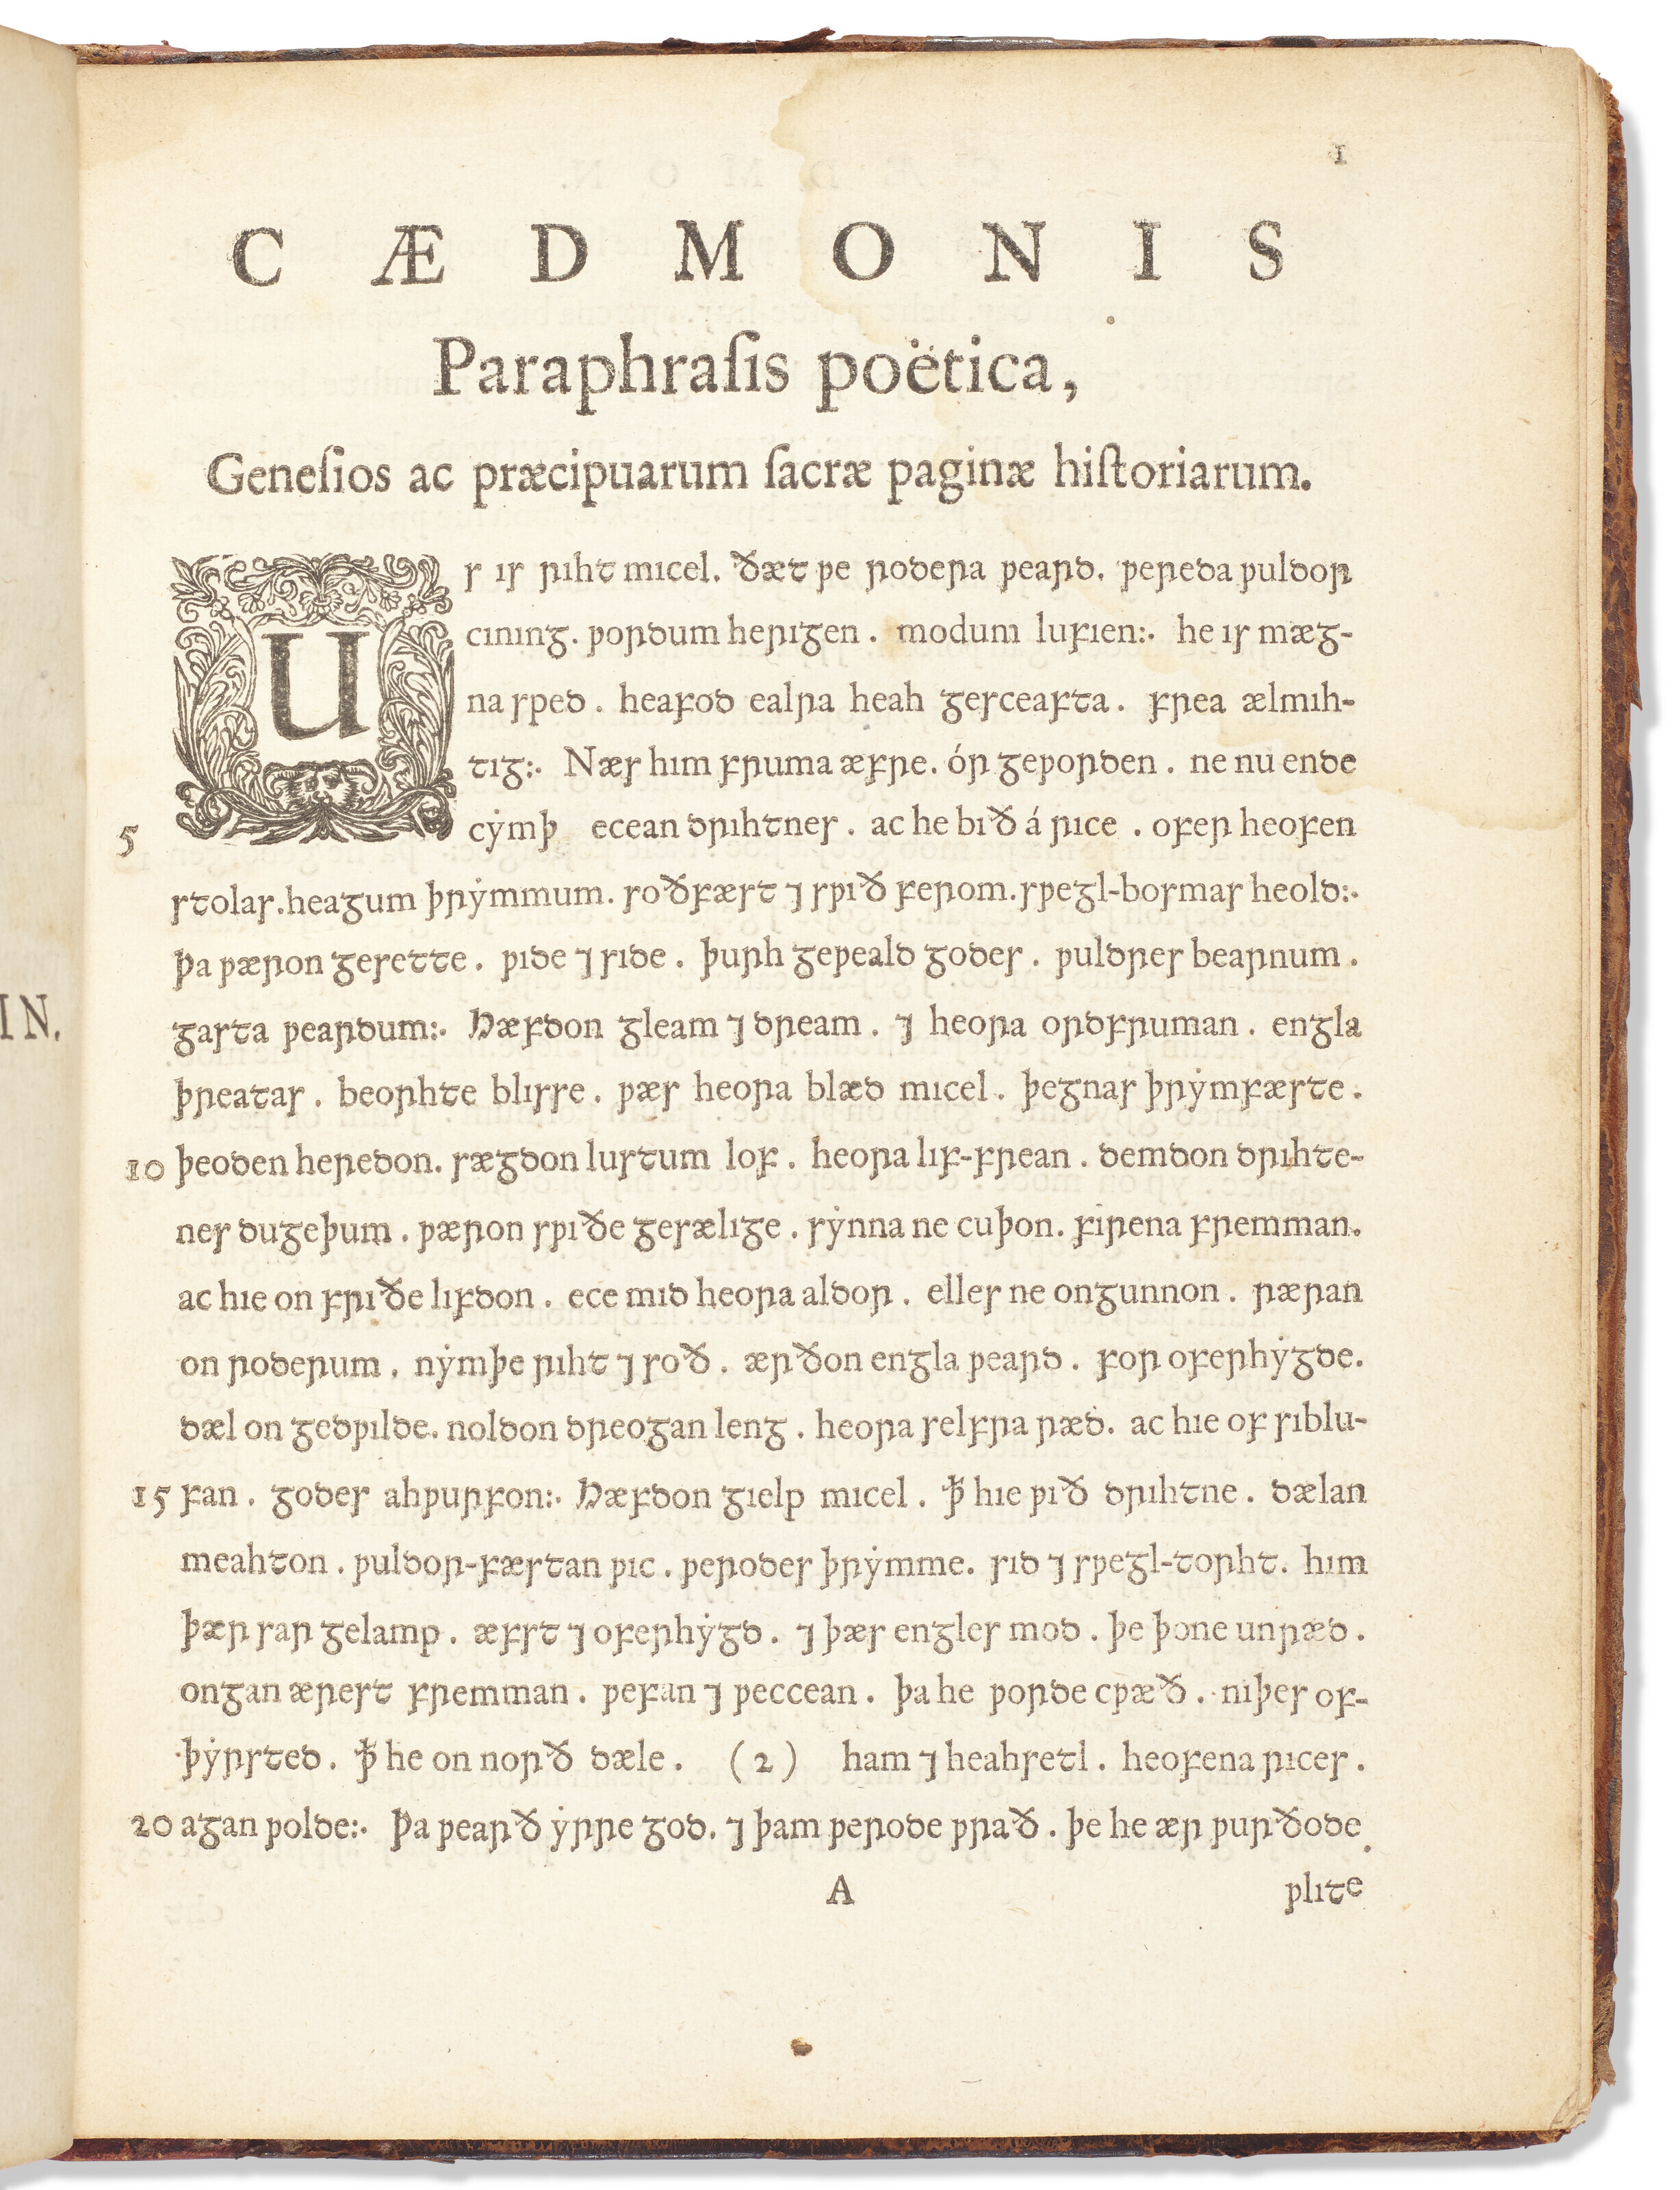 1
CÆDMONIS
Paraphraſis poëtica,
Geneſios ac præcipuarum ſacræ paginæ hiſtoriarum.
Us is riht micel. ðæt ƿe rodera ƿeard. ƿereda ƿuldor
cining. ƿordum herigen. modum lufien:. he is mæg-
na sped. heafod ealra heah gesceafta. frea ælmih-
tig:. Næs him fruma æfre. ór geƿorden. ne nu ende
5 cẏmþ ecean drihtnes. ac he bið á rice. ofer heofen
stolas. heagum þrẏmmum. soðfæst ⁊ sƿið ferom. sƿegl-bosmas heold:.
Þa ƿæron gesette. ƿide ⁊ side. þurh geƿeald godes. ƿuldres bearnum.
gasta ƿeardum:. Hæfdon gleam ⁊ dream. ⁊ heora ordfruman. engla
þreatas. beorhte blisse. ƿæs heora blæd micel. þegnas þrẏmfæste.
10 þeoden heredon. sægdon lustum lof. heora lif-frean. demdon drihte-
nes dugeþum. ƿæron sƿiðe gesælige. sẏnna ne cuþon. firena fremman.
ac hie on friðe lifdon. ece mid heora aldor. elles ne ongunnon. ræran
on roderum. nẏmþe riht ⁊ soð. ærðon engla ƿeard. for oferhẏgde.
dæl on gedƿilde. noldon dreogan leng. heora selfra ræd. ac hie of siblu-
15 fan. godes ahƿurfon:. Hæfdon gielp micel. ꝥ hie ƿið drihtne. dælan
meahton. ƿuldor-fæstan ƿic. ƿerodes þrẏmme. sid ⁊ sƿegl-torht. him
þær sar gelamp. æfst ⁊ oferhẏgd. ⁊ þæs engles mod. þe þone unræd.
ongan ærest fremman. ƿefan ⁊ ƿeccean. þa he ƿorde cƿæð. niþes of-
þẏrsted. ꝥ he on norð dæle. (2) ham ⁊ heahsetl. heofena rices.
20 agan ƿolde:. Þa ƿearð ẏrre god. ⁊ þam ƿerode ƿrað. þe he ær ƿurðode.
A ƿlite
IN.